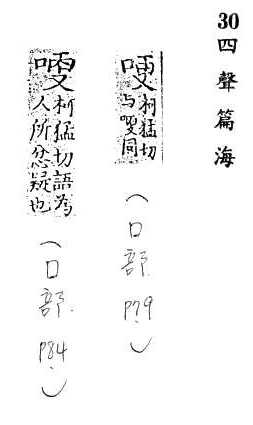 30 四聲篇海
哽 柯猛切
与 同
(口部. P79.)
柯猛切語為
人所忿疑也
(口部. P84.)